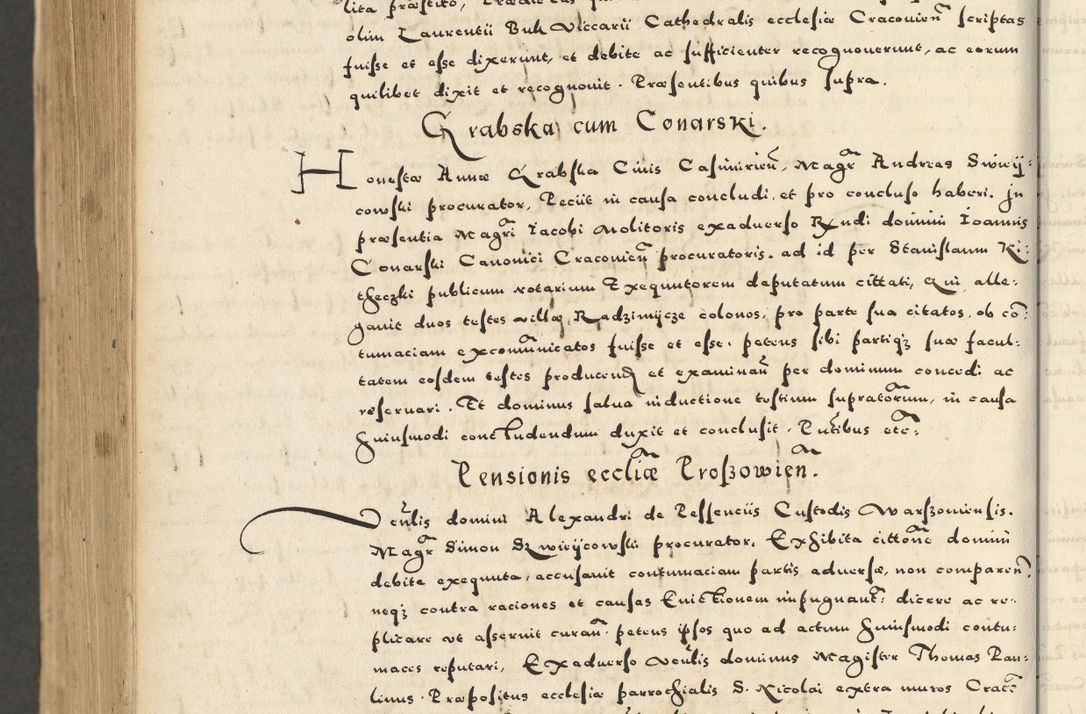 olim Laurentii Buk viccarii Cathedralis ecclesiæ Cracovien̄ scriptas
fuisse et esse dixerunt, et debite ac sufficienter recognouerunt, ac eorum
quilibet dixit et recognouit. Præsentibus quibus supra.
Grabska cum Conarski.
Honestæ Annæ Grabska Ciuis Casimirien̄, Magr̄ Andreas
cowski procurator, Peciit in causa concludi, et pro concluso haberi. In
præsentia Magr̄i Iacobi Molitoris exaduerso Rn̄di domini Ioannis
Conarski Canonici Cracouien̄ procuratoris. ad id per Stanislaum Ki:
theczki publicum notarium Exequutorem deputatum cittati, Qui alle:
gauit duos testes villæ Radzimijcze colonos, pro parte sua citatos, ob cō:
tumaciam excom̄unicatos fuisse et esse. petens sibi partiq; suæ facul:
tatem eosdem testes producend et examinan̄ per dominum concedi ac
reseruari. Et dominus salua inductione testium supratorum, in causa
huiusmodi concludendum duxit et conclusit. Pn̄tibus etc̄:
Pensionis eccliæ Proszowien̄.
Ven̄lis domini Alexandri de Pessenciis Custodis Warszouiensis.
Magr̄ Simon procurator, Exhibita cittōne domini
debite exequuta, accusauit contumaciam partis aduersæ, non comparen̄,
neq; contra raciones et causas Euictionem impugnant: dicere ac re:
plicare vt asseruit curan̄. petens ipsos quo ad actum huiusmodi contu:
maces reputari, Exaduerso Ven̄lis dominus Magister Thomas Pau:
linus. Præpositus ecclesiæ parrochialis S. Nicolai extra muros Crac̄